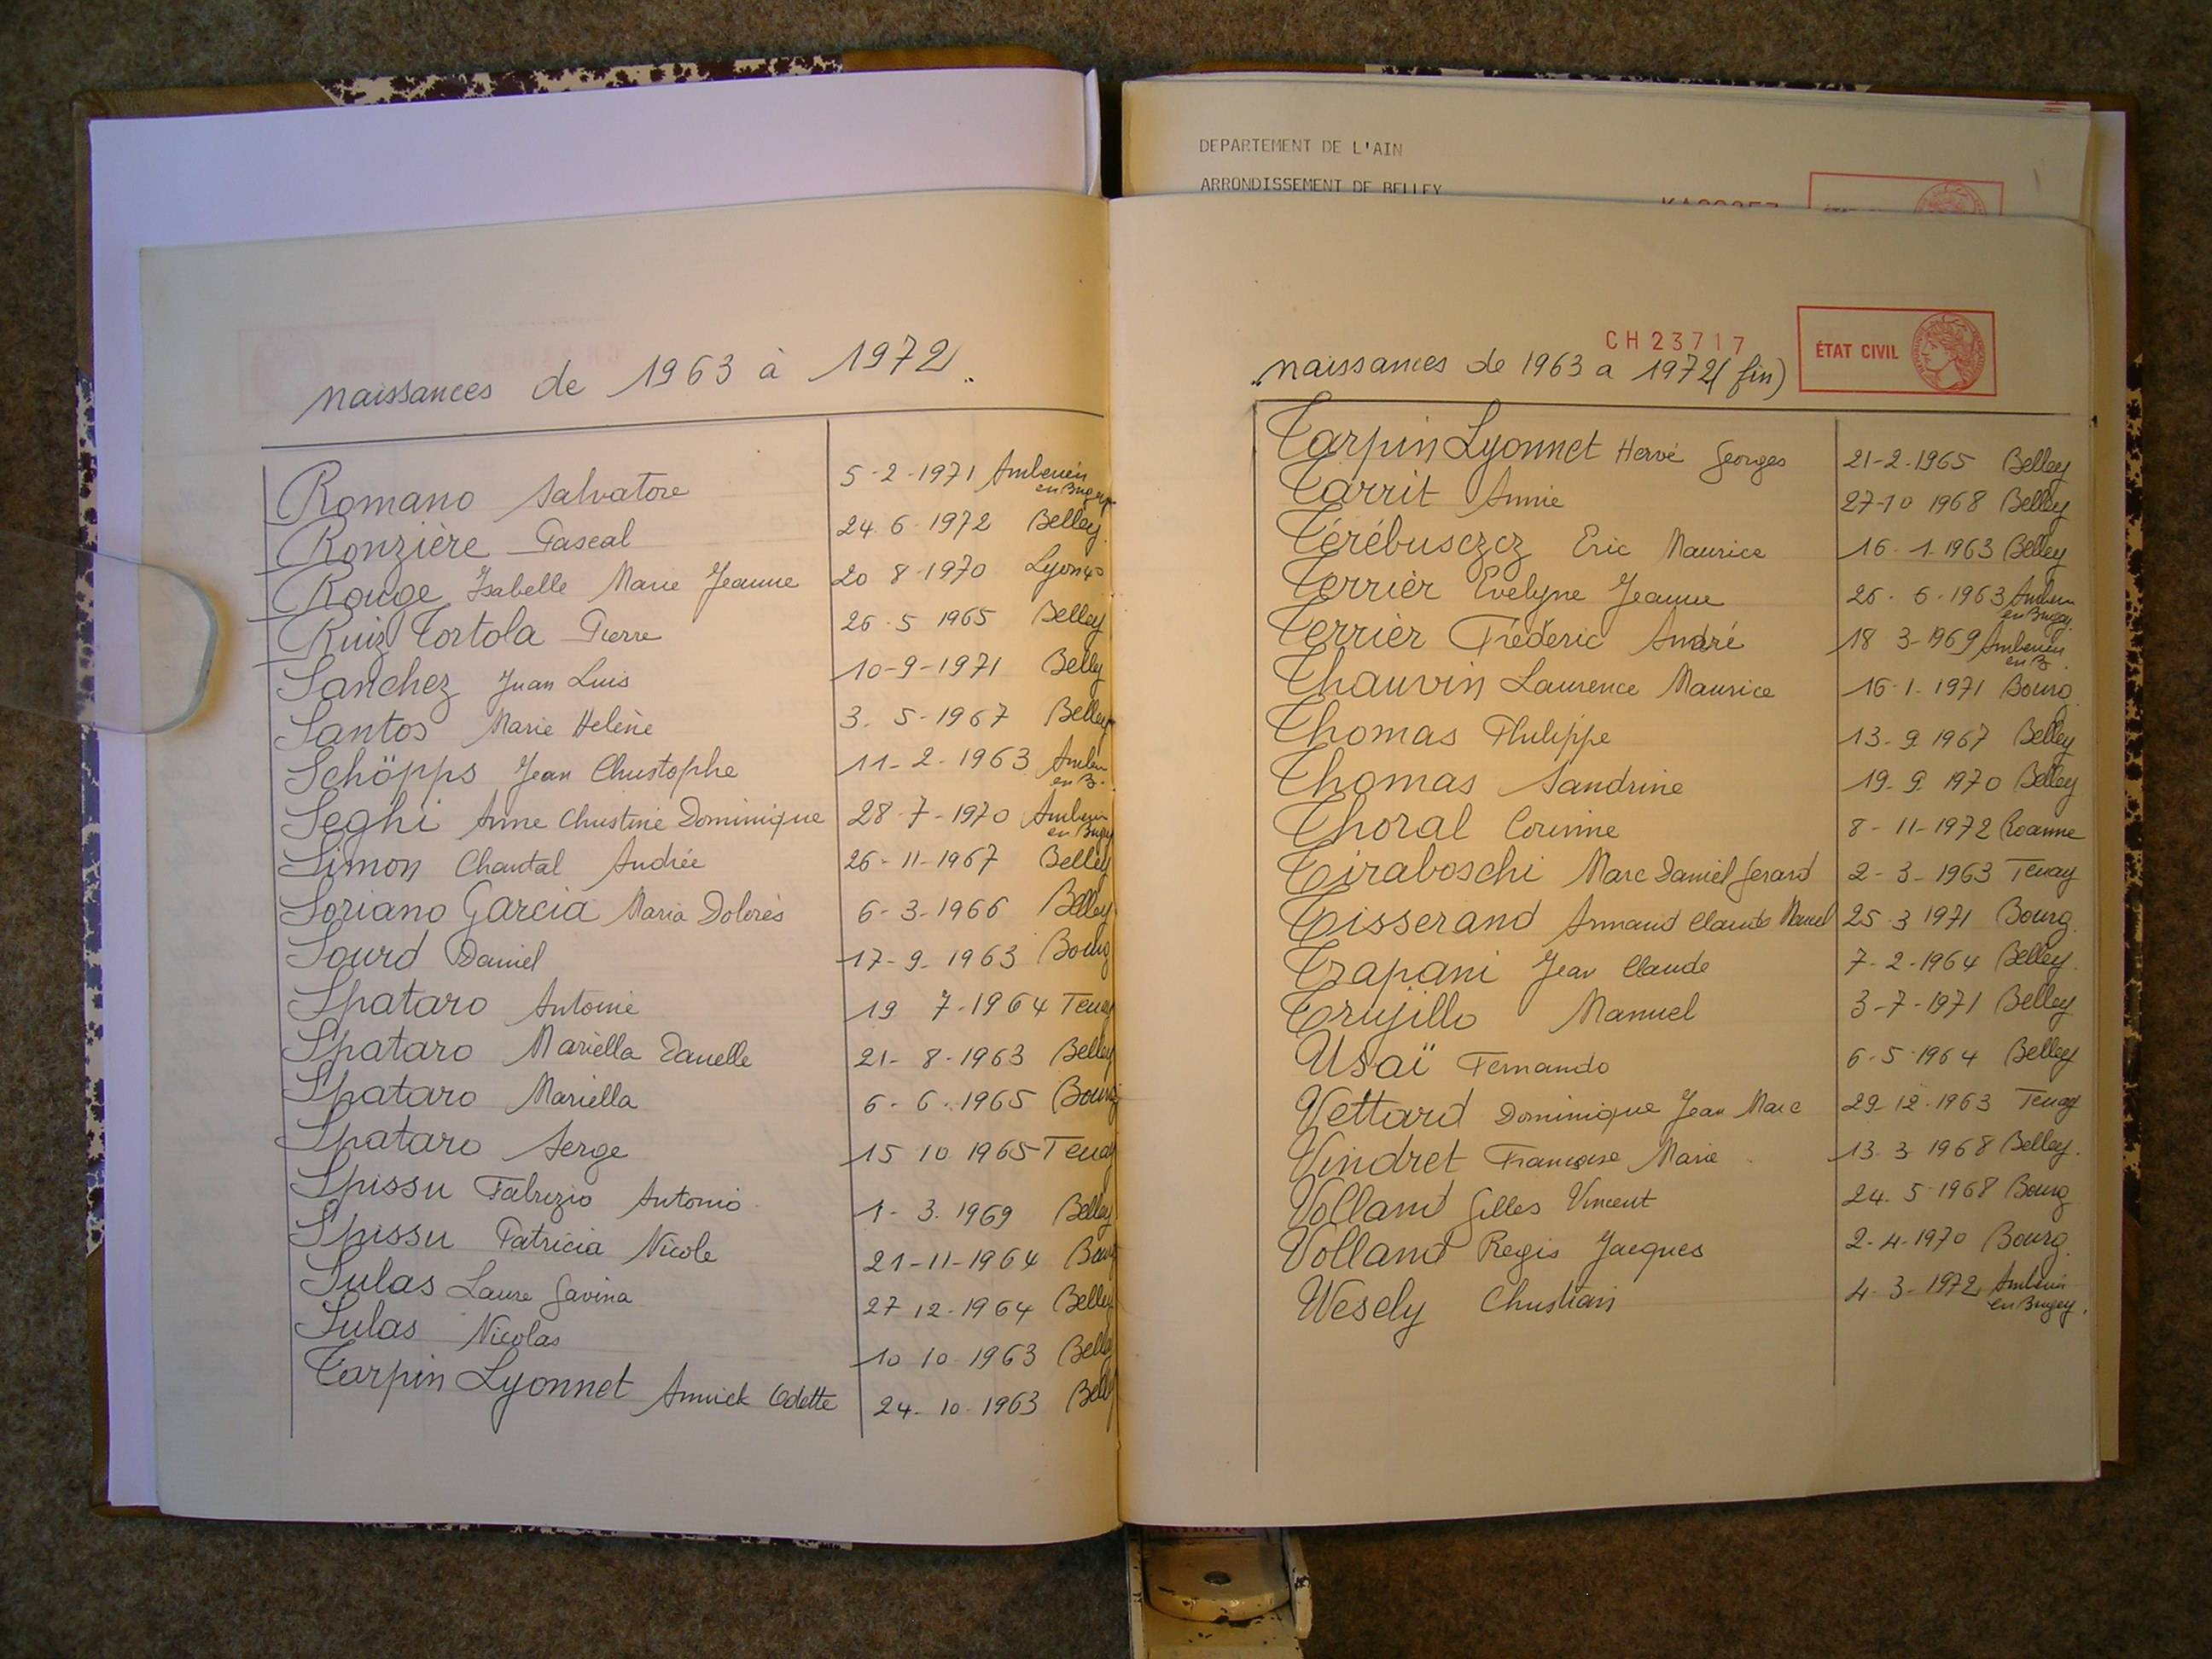 naissances de 1963 à 1972.
Romano Salvatore 5-2-1971 Ambérieu
en Bugey
Ronzière Pascal 24.6.1972 Belley.
Rouge Isabelle Marie Jeanne 20 8-1970 Lyon
Ruiz Tortola Pierre 26.5 1965 Belley
Sanchez Juan Luis 10-9-1971 Belley
Santos Marie Helène 3.5-1967 Belley
Schöpps Jean Christophe 11-2-1963 Amber
en B.
Seghi Anne Christine Dominique 28-7-1970 Amberieu
en Bugey
Simon Chantal Andrée 26-11-1967 Belley
Soriano Garcia Maria Dolorès 6-3-1966 Belley
Sourd Daniel 17-9-1963 Bourg
Spataro Antoine 19 7-1964 Tenay
Spataro Mariella Danielle 21-8-1963 Belley
Spataro Mariella 6-6-1965 Bourg
Spataro Serge 15 10 1965 Tenay
Spissu Fabrizio Antonio 1-3.1969 Belley
Spissu Patricia Nicole 21-11-1964 Bourg
Sulas Laure Gavina 27 12-1964 Belley
Sulas Nicolas 10 10-1963 Belley
Tarpin Lyonnet Annick Odette 24-10-1963 Belley
DEPARTEMENT DE L'AIN
ARRONDISSEMENT DE BELLEY
CH 23717
ÉTAT CIVIL
naissances de 1963 a 1972 (fin)
Tarpin Lyonnet Hervé Georges 21-2-1965 Belley
Tarrit Annie 27-10 1968 Belley
Térébuszcz Eric Maurice 16-1-1963 Belley
Terrier Evelyne Jeanne 26-6-1963 Amber
en Bugey.
Terrier Fréderic André 18 3-1969 Amberieu
en B.
Thauvin Laurence Maurice 16-1-1971 Bourg
Thomas Philippe 13-9 1967 Belley
Thomas Sandrine 19-9 1970 Belley
Thoral Corinne 8-11-1972 Roanne
Tiraboschi Marc Daniel Gerard 2-3-1963 Tenay
Tisserand Armand Claude Marcel 25-3 1971 Bourg.
Trapani Jean Claude 7-2-1964 Belley.
Trujillo Manuel 3-7-1971 Belley
Usaï Fernando 6-5-1964 Belley
Vettard Dominique Jean Marc 29-12-1963 Tenay
Vindret Françoise Marie 13-3 1968 Belley.
Volland Gilles Vincent 24.5-1968 Bourg
Volland Regis Jacques 2-4-1970 Bourg.
Wesely Christian 4-3-1972 Amberieu
en Bugey.